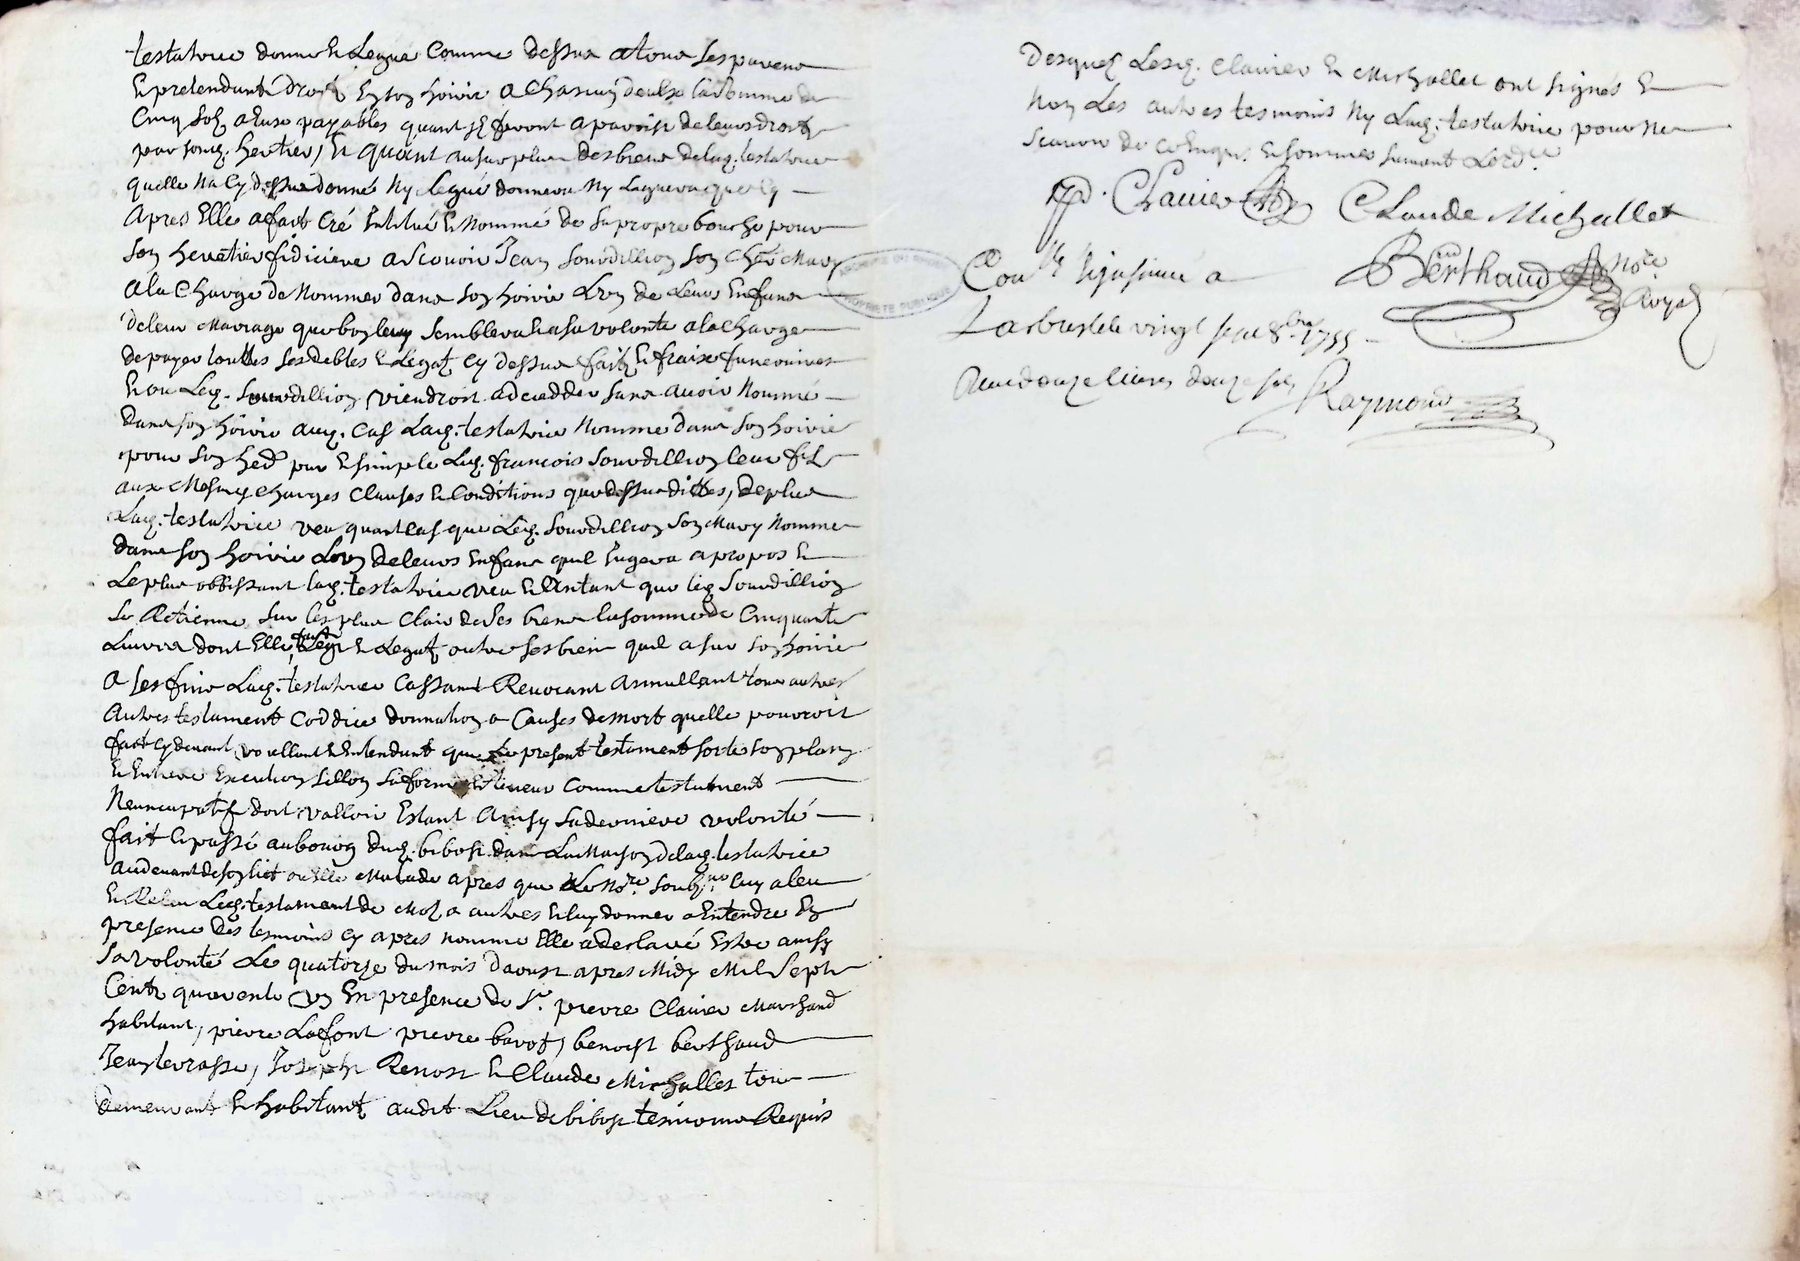 testatrice donne et legue comme dessus a tous ses parens
et pretendants droit en son hoirie a chascun deulx la somme de
cinq sols a eux payables quant ils feront aparoistre de leurs droits
par sond. heritier, et quant au surplus des biens de lad. testatrice
quelle na cy dessus donné ny legué donnera ny leguera cy
apres Elle a fait créé Institué et nommé de sa propre bouche pour
son heretier fidiciere a scavoir Jean Sourdillion son cher mary
a la charge de nommer dans son hoirie Lun de leurs enfans
de leur mariage que bon luy semblera et a sa volonte a la charge
de payer touttes ses debtes et legats cy dessus faits et fraix funeraires
et ou led. Sourdillion viendroit a decedder sans avoir nommé
dans son hoirie aud. cas lad. testatrice nomme dans son hoirie
pour son hed. pur et simple led. francois Sourdillion leur fils
aux mesmes charges clauses et conditions que dessus dittes, de plus
Lad. testatrice veu quant cas que led. Sourdillion son mary nomme
dans son hoirie Lun de leurs enfans quil Jugera a propos et
le plus obbissant lad. testatrice veu et entant que led. Sourdillion
se Retienne sur les plus clair de ses biens la somme de cinquante
Livres dont Elle fait et legat outre ses bien quil a sur son hoirie
a ses fins Lad. testatrice cassant Revocant annullant tous autres
autres testament coddice donnation a causes de mort quelle pouroit
fait cy devant voullant et entendant que le present testament sorte son plain
et entiere execution sellon sa forme et teneur comme testament
Nuncupatif doit valloir Estant ainsy sa derniere volonté
fait et passé au bourg dud. bibost dans La maison de lad. testatrice
au devant de son lict ou elle malade apres que le nore. soubne. luy a leu
et Releu led. testament de mot a autres et luy donner a Entendre En
presence des tesmoins cy apres nomme Elle a desclaré Estre ainsy
sa volonté Le quatorze du mois daoust apres midy mil sept
cents quarente un En presence de sr. pierre Clavier marchand
habitant, pierre Lafont pierre barot, benoist berthaud
Jean terrasse, Joseph Renost et Claude Michallet tous
demeurant et habitants audit Lieu de bibost tesmoins Requis
desquels Lesd. Clavier et Michallet ont signés et
non Les autres tesmoins ny Lad. testatrice pour ne
scavoir de ce enquis et sommés suivant Lordce
P. Clavier Claude Michallet
Berthaud nore Royal
Conlé Insinué a
Larbresle le vingt sept 8bre 1755
Receu douze livres douze sols Raymond